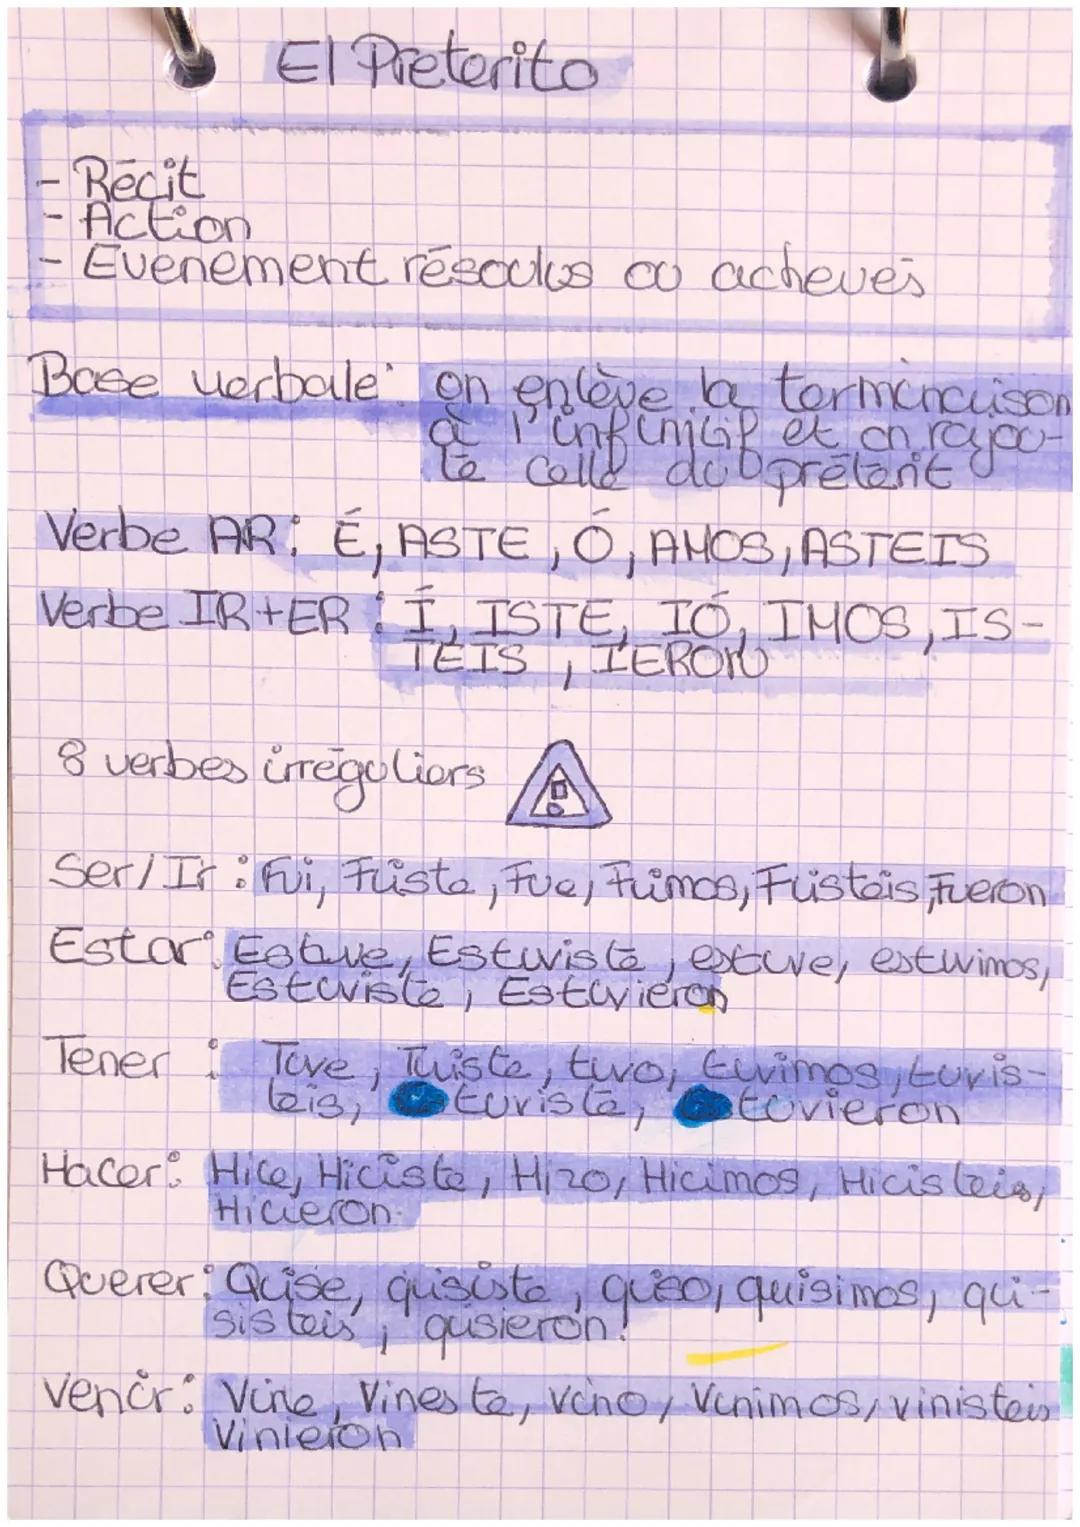 El Preterito
- Récit
- Action
- Evenement résoulus ou achevés
Base verbale : on enlève la terminaison
à l'infinitif et on rajou-
te celle du prétérit
Verbe AR : É, ASTE, Ó, AMOS, ASTEIS
Verbe IR+ER : Í, ISTE, IÓ, IMOS, IS-
TEIS, IERON
8 verbes irréguliers
Ser/Ir : Fui, Fuiste, Fue, Fuimos, Fuisteis, Fueron
Estar : Estuve, Estuviste, estuve, estuvimos,
Estuviste, Estuvieron
Tener : Tuve, Tuiste, tuvo, tuvimos, tuvis-
teis, tuviste, tuvieron
Hacer : Hice, Hiciste, Hizo, Hicimos, Hicisteis,
Hicieron.
Querer : Quise, quisiste, quiso, quisimos, qui-
sisteis, qusieron.
Venir : Vine, Vineste, vino, Vinimos, vinisteis
Vinieron